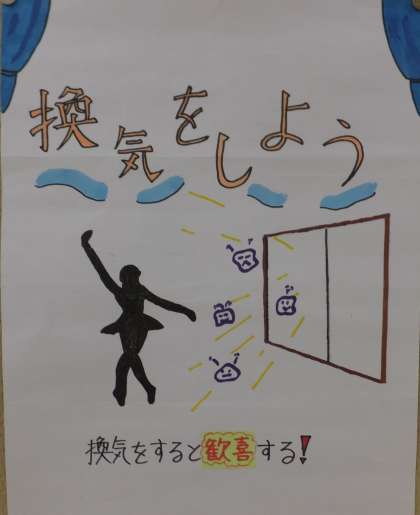 換気をしよう
換気をすると歓喜する!